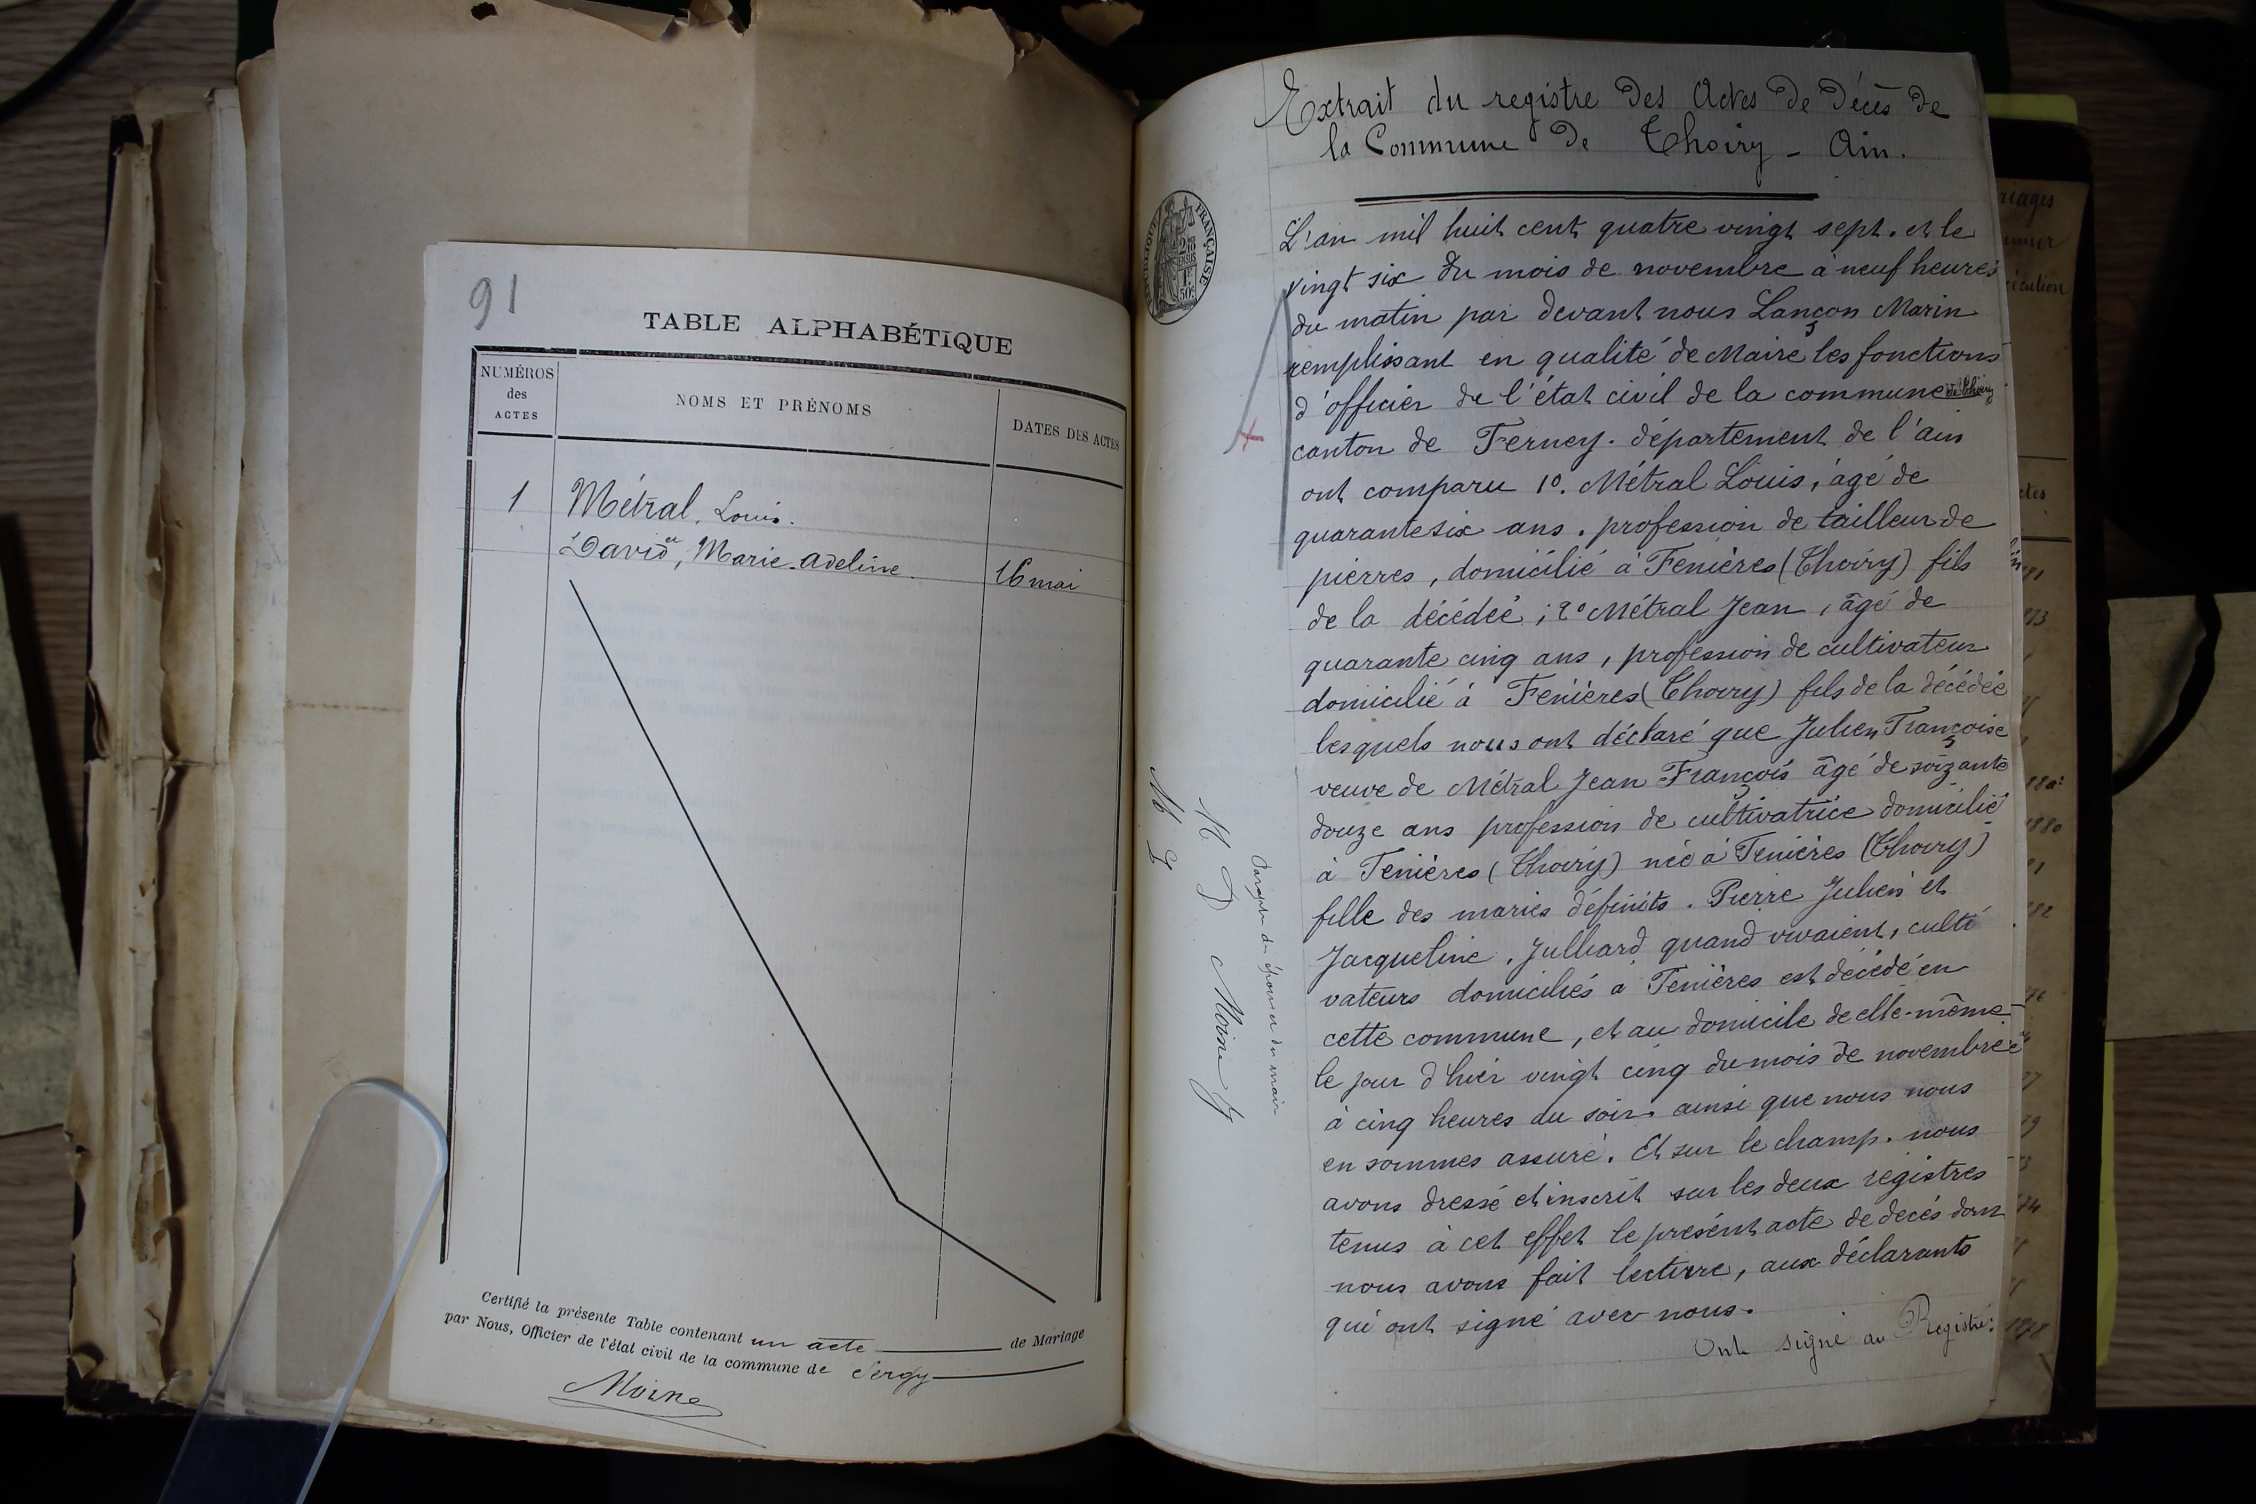 91
TABLE ALPHABÉTIQUE
NUMÉROS
des
ACTES
NOMS ET PRÉNOMS
DATES DES ACTES
1
Métral, Louis.
et
David, Marie-Adeline
16 mai
Certifié la présente Table contenant un acte de Mariage
par Nous, Officier de l'état civil de la commune de Sergy
Moine
Extrait du registre des Actes de Décès de
la Commune de Thoiry - Ain.
RÉPUBLIQUE FRANÇAISE
L'an mil huit cent quatre vingt sept. et le
vingt six du mois de novembre à neuf heures
du matin par devant nous Lançon Marin
remplissant en qualité de Maire les fonctions
d'officier de l'état civil de la commune de Thoiry
canton de Ferney. département de l'ain
ont comparu 1º. Métral Louis, âgé de
quarante six ans. profession de tailleur de
pierres, domicilié à Fenières (Thoiry) fils
de la décédée; 2º Métral Jean, âgé de
quarante cinq ans, profession de cultivateur
domicilié à Fenières (Thoiry) fils de la décédée
lesquels nous ont déclaré que Julien Françoise
veuve de Métral Jean François âgé de soizante
douze ans profession de cultivatrice domicilié
à Fenières (Thoiry) née à Fenières (Thoiry)
fille des mariés défunts. Pierre Julien et
Jacqueline. Julliard quand vivaient, culti
vateurs domiciliés à Fenières est décédé en
cette commune, et au domicile de elle-même
le jour d'hier vingt cinq du mois de novembre
à cinq heures du soir. ainsi que nous nous
en sommes assuré. Et sur le champ. nous
avons dressé et inscrit sur les deux registres
tenus à cet effet le présent acte de decés dont
nous avons fait lecture, aux déclarants
qui ont signé avec nous.
Ont signé au Registre:
M L
M D Moine
Paraphe des époux et du maire